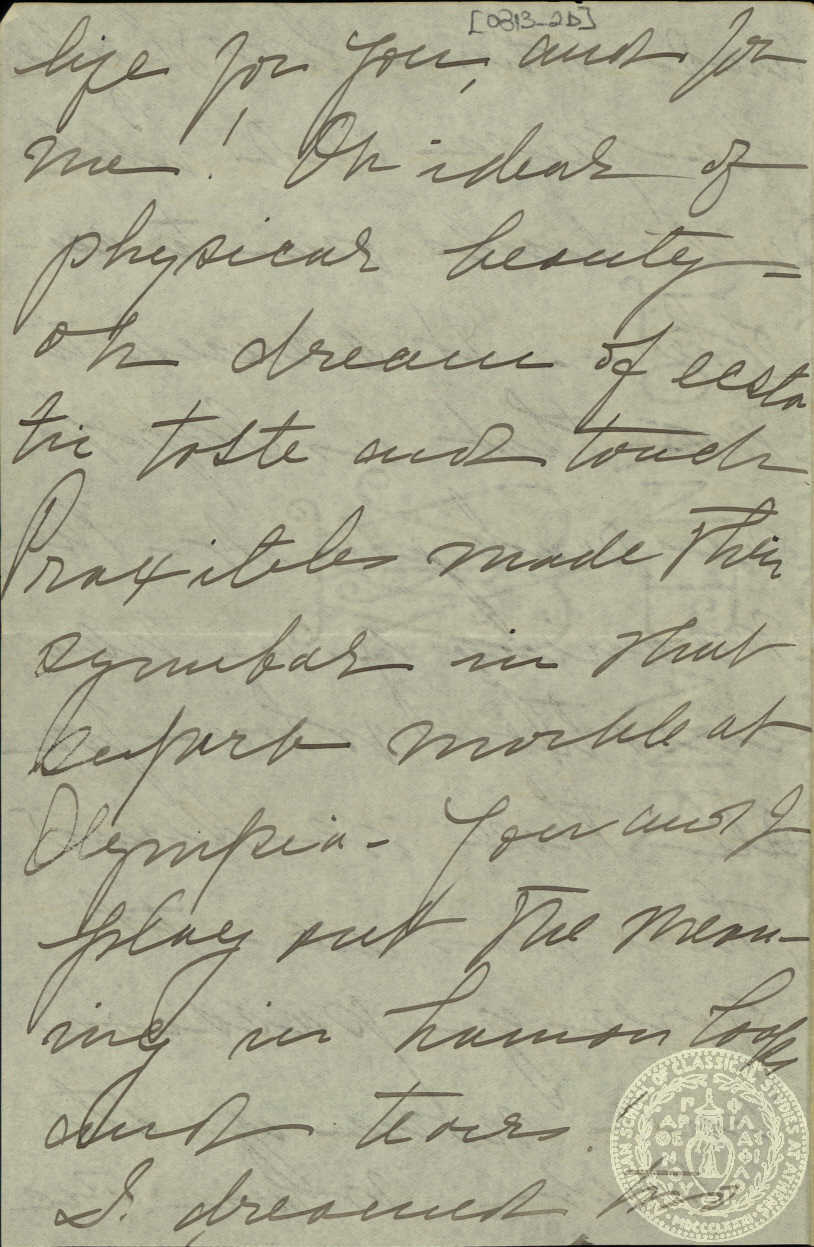 [0313-2D]
life for you, and for
me! Oh ideal of
physical beauty =
oh dream of ecsta
tic taste and touch
Praxiteles made their
symbol in that
superb marble at
Olympia - You and I
play out the mean-
ing in human
and tears.
I dreamed
AN SCHOOL OF CLASSICAL STUDIES AT ATHENS
MDCCCLXXXI